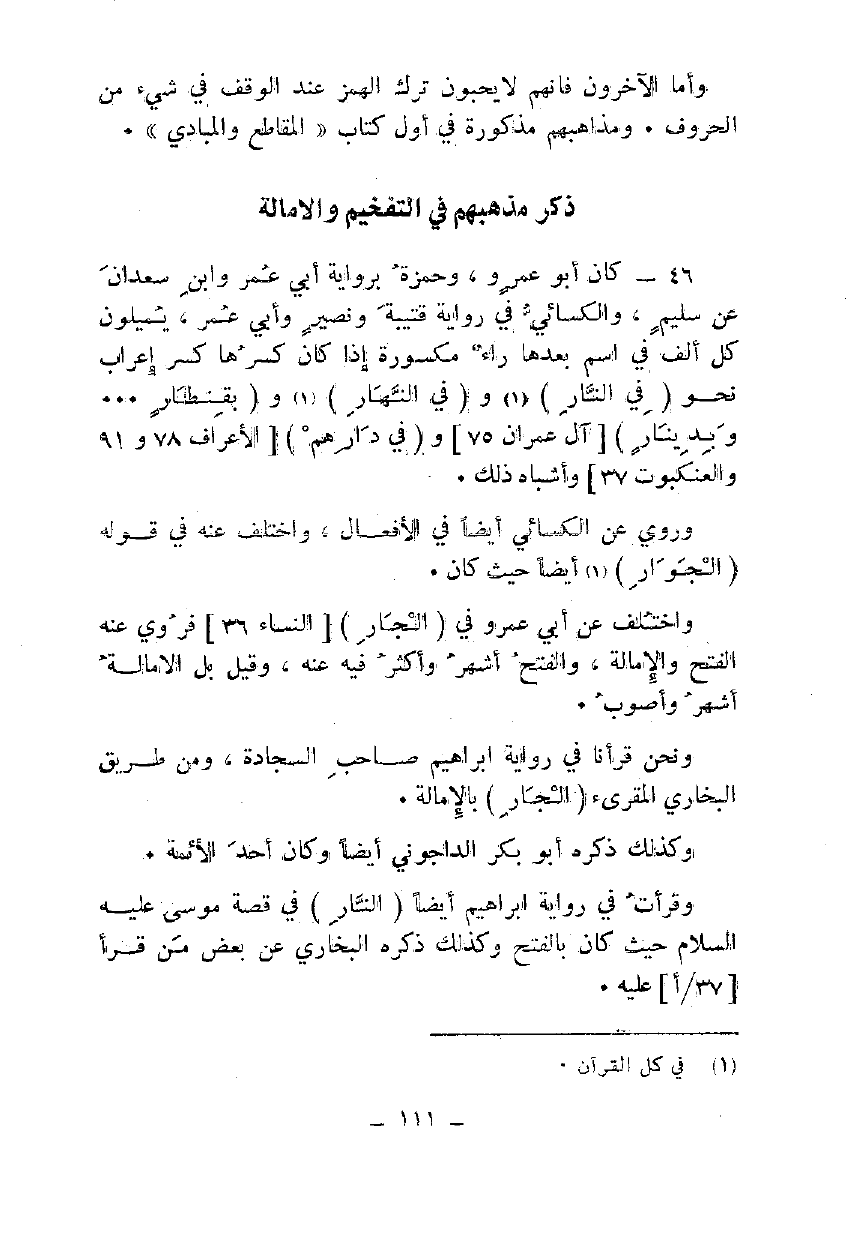 وأما الآخرون فانهم لايحبون ترك الهمز عند الوقف في شيء من
الحروف . ومذاهبهم مذكورة في أول كتاب « المقاطع والمبادي » .
ذكر مذهبهم في التفخيم والامالة
٤٦ – كان أبو عمرٍو ، وحمزةُ برواية أبي عُمر وابنِ سعدانَ
عن سليمٍ ، والكسائيُّ في رواية قتيبةَ ونصيرٍ وأبي عُمر ، يُميلون
كل ألف في اسم بعدها راءٌ مكسورة إذا كان كسرُها كسر إعراب
نحـو ( في النَّارِ ) (١) و ( في النَّهَارِ ) (١) و ( بقِنطَارٍ ...
وَبِدِينَارٍ ) [ آل عمران ٧٥ ] و ( في دَارِهِمْ ) [ الأعراف ٧٨ و ٩١
والعنكبوت ٣٧ ] وأشباه ذلك .
وروي عن الكسائي أيضاً في الأفعـال ، واختلف عنه في قـوله
( الْجَوَارِ ) (١) أيضاً حيث كان .
واختُلف عن أبي عمرو في ( الْجَارِ ) [ النساء ٣٦ ] فرُوي عنه
الفتح والإمالة ، والفتحُ أشهرُ وأكثرُ فيه عنه ، وقيل بل الامالـةُ
أشهرُ وأصوبُ .
ونحن قرأنا في رواية ابراهيم صـاحبِ السجادة ، ومن طـريق
البخاري المقرىء ( الْجَارِ ) بالإمالة .
وكذلك ذكره أبو بكر الداجوني أيضاً وكان أحدَ الأئمة .
وقرأتُ في رواية ابراهيم أيضاً ( النَّارِ ) في قصة موسى عليـه
السلام حيث كان بالفتح وكذلك ذكره البخاري عن بعض مَن قـرأ
[٣٧/أ] عليه .
(١) في كل القرآن .
– ١١١ –